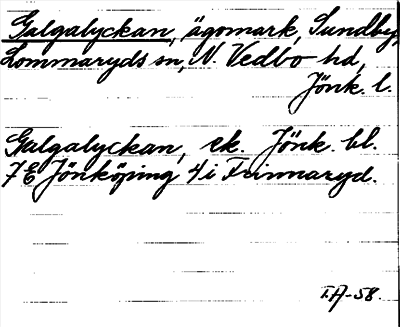 Galgalyckan, ägomark, Sundby,
Lommaryds sn, N. Vedbo hd,
Jönk. l.
Galgalyckan, ek. Jönk. bl.
7E Jönköping 4i Frinnaryd.
I.A-58.